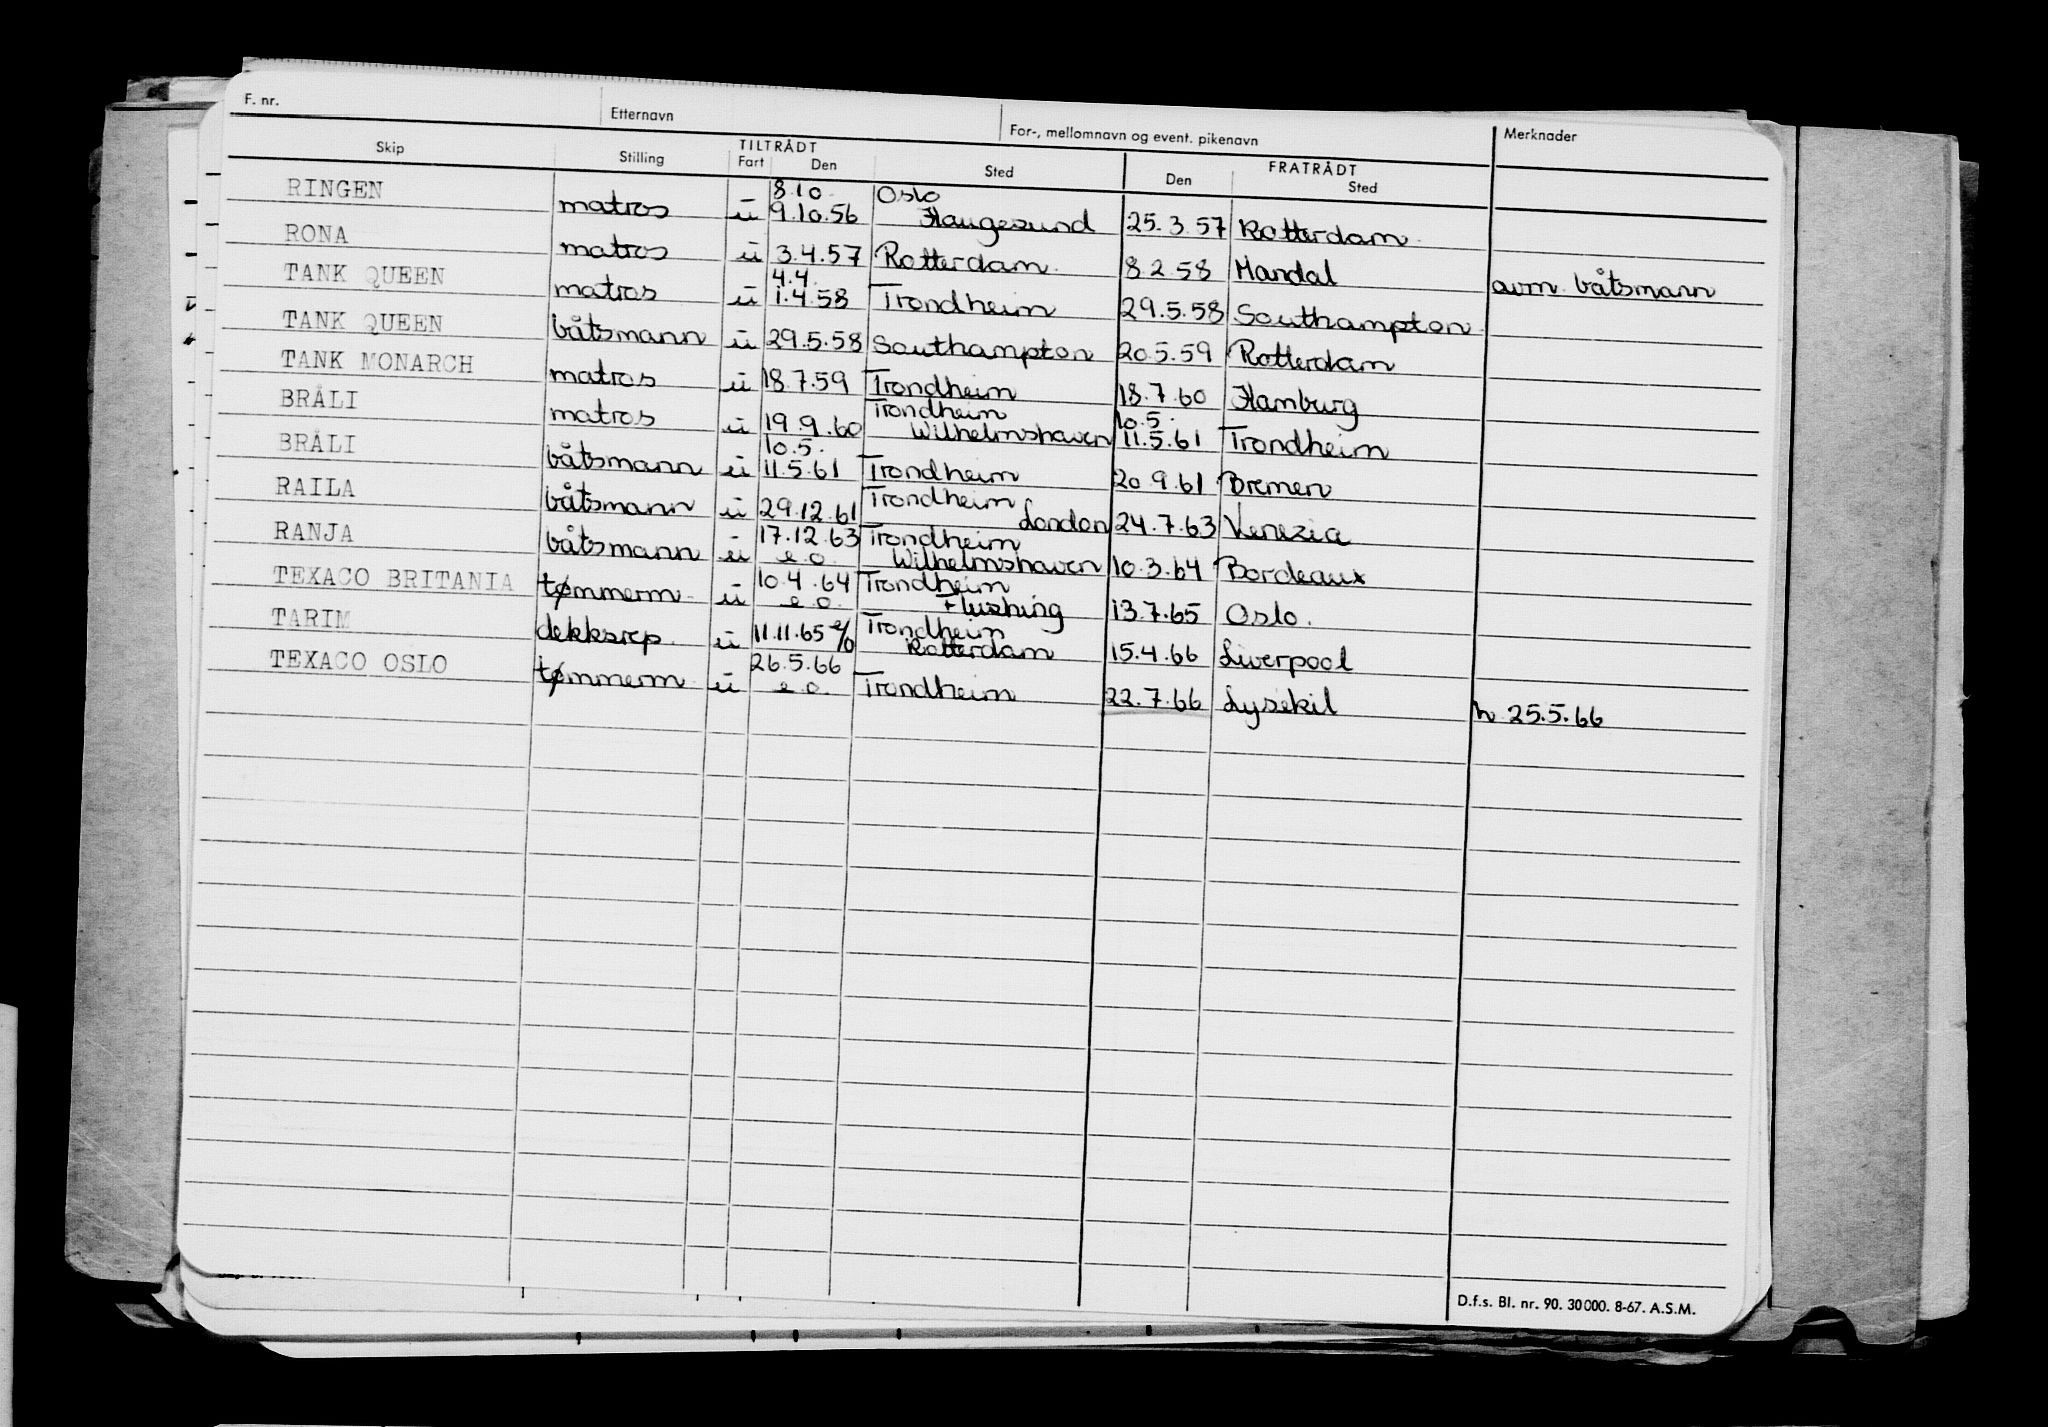 F. nr. Etternavn For-, mellomnavn og event. pikenavn Merknader
Skip Stilling TILTRÅDT Fart Den Sted FRATRÅDT Den Sted
RINGEN matros u 8.10. 9.10.56 Oslo Haugesund 25.3.57 Rotterdam
RONA matros u 3.4.57 Rotterdam 8.2.58 Mandal avm båtsmann
TANK QUEEN matros u 4.4. 1.4.58 Trondheim 29.5.58 Southampton
TANK QUEEN båtsmann u 29.5.58 Southampton 20.5.59 Rotterdam
TANK MONARCH matros u 18.7.59 Trondheim 18.7.60 Hamburg
BRÅLI matros u 19.9.60 Trondheim Wilhelmshaven 10.5. 11.5.61 Trondheim
BRÅLI båtsmann u 10.5. 11.5.61 Trondheim 20.9.61 Bremen
RAILA båtsmann u 29.12.61 Trondheim London 24.7.63 Venezia
RANJA båtsmann u 17.12.63 e.o. Trondheim Wilhelmshaven 10.3.64 Bordeaux
TEXACO BRITANIA tømmerm. u 10.4.64 e.o. Trondheim Flushing 13.7.65 Oslo.
TARIM dekksrep. u 11.11.65 e/o Trondheim Rotterdam 15.4.66 Liverpool
TEXACO OSLO tømmerm. u 26.5.66 e.o. Trondheim 22.7.66 Lysekil h 25.5.66
D.f.s. Bl. nr. 90. 30000. 8-67. A.S.M.